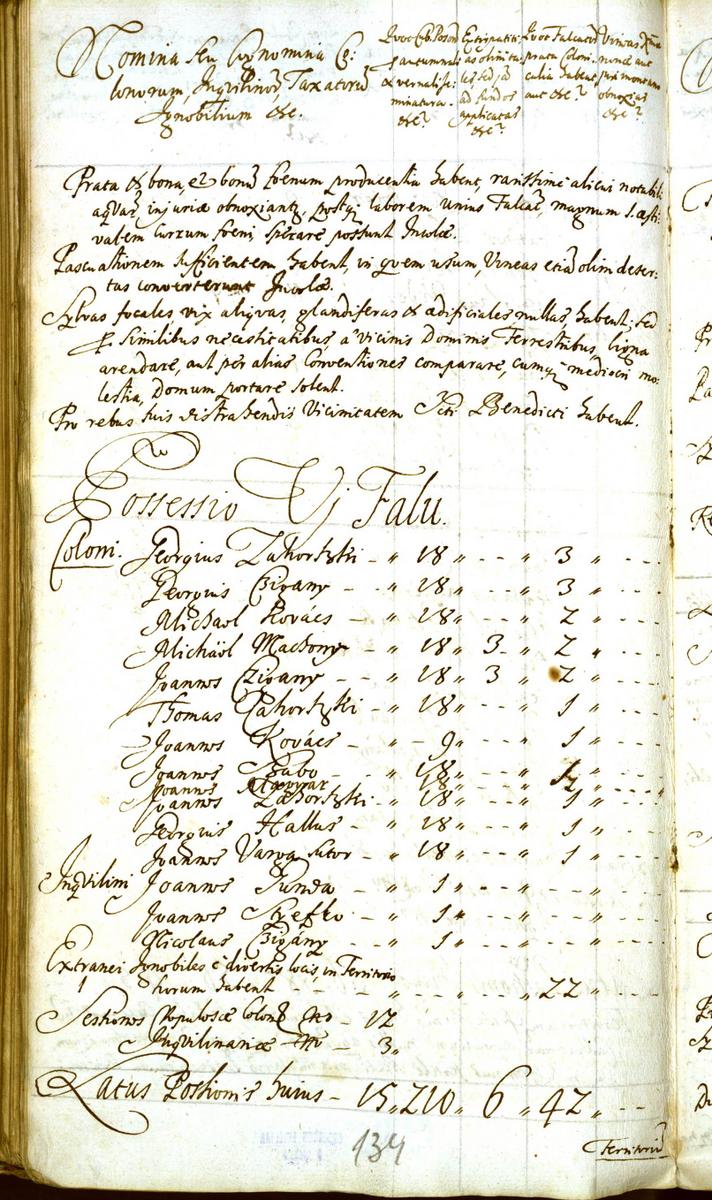 Nomina seu Cognomina Co:
lonorum, Inqvilinorũ, Taxatorũ
Ignobilium &c.
Qvot Cub. Poson
autumnali
& vernali se:
minatura.
&c?
Extirpatiti:
as olim ta:
les, sed jã
ad fundos
applicatas
&c?
Qvot Falcatorũ
prata Coloni:
calia habent,
aut &c?
Vineas
nonæ aut
juri montano
obnoxias
&c?
Prata & bona, et bonũ foenum producentia habent, rarissime alicui notabili
aqvarũ injuriæ obnoxiantur, postqz laborem unius Falcat, magnum 1. æsti:
valem currum foeni, sperare possunt Incolæ.
Pascuationem sufficientem habent, in qvem usum, Vineas etiã olim deser:
tas converterunt Incolæ.
Sylvas focales vix aliqvas, glandiferas & ædificiales nullas habent; sed
similibus necessitatibus, a vicinis Dominis Terrestribus, ligna
arendare, aut per alias Conventiones comparare, cumqz mediocri mo:
lestia, Domum portare solent.
Pro rebus suis distrahendis Vicinitatem Scti Benedicti habent.
Possessio Uj Falu.
Coloni. Georgius Zahorszki - " 18 " - - " 3 " - - -
Georgius Czigany - " 18 " - - " 3 " - - -
Michael Kovács - " 18 " - - " 2 " - - -
Michäel Machony - " 18 " 3 - " 2 " - - -
Joannes Czigany - - " 18 " 3 " 2 " - - -
Thomas Zahorszki - " 18 " - - " 1 " - - -
Joannes Kovács - " - 9 " - - " 1 " - - -
Joannes Szabo - " 18 " - - "
Joannes
Joannes Zahorszki - " 18 " - - " 1 " - - -
Georgius Hallus - " 18 " - - " 1 " - - -
Joannes Varga Sutor - " 18 " - - " 1 " - - -
Inqvilini Joannes Gunda - " 1 " - - " - - " - - -
Joannes Szefko - " 1 " - - " - - " - - -
Nicolaus Czigány - " 1 " - - " - - " - - -
Extranei Ignobiles e diversis locis, in Territorio
horum habent - - - " - - " - - " 22 " - - -
Sessiones Populosæ Colon - 12
Inqvilinariæ - 3 "
Latus Possionis huius - 15 " 210 " 6 " 42 " - - -
134
Territoriũ